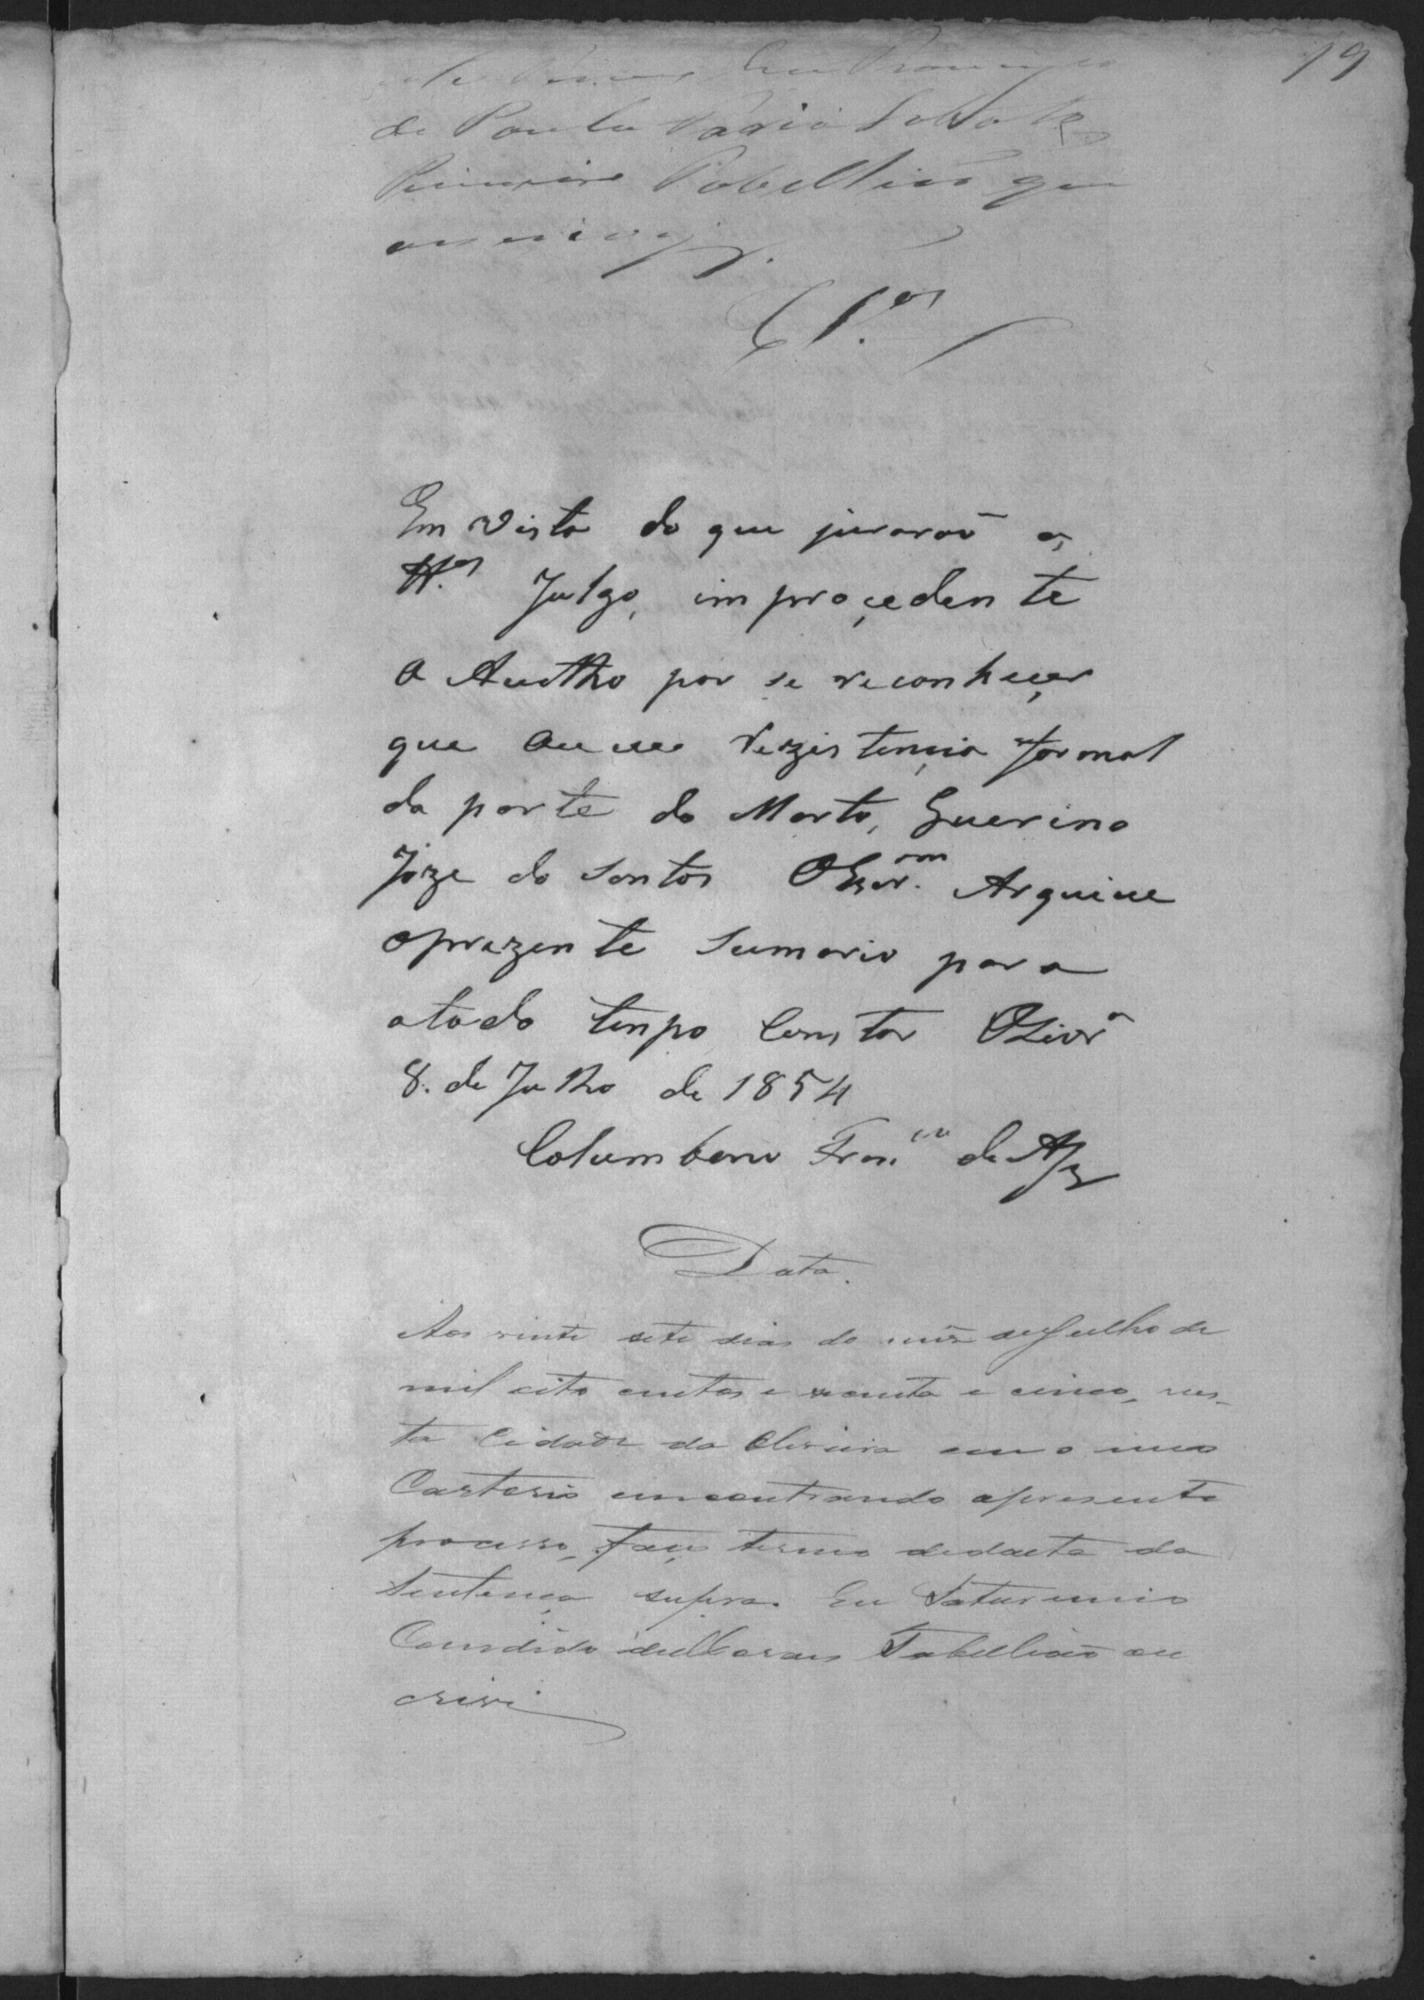 19
de Paula
Primeiro Tabelliaõ que
escrevy.
Cl.os
Em Vista do que juraraõ as
tt.as Julgo, improçedente
o Auttho por se reconheçer
que ouve rezistençia formal
da parte do Morto, Guerino
Joze do Santos OEscr.am Arquive
oprezente Sumario para
atodo tenpo Constar OLivr.a
8. de Julho de 1854
Columbano Fran.co de
Data.
Aos vinte sete dias do mêz de Julho de
mil oito centos e e cinco, nes-
ta Cidade da Oliveira em o meu
Cartorio encontrando apresente
processo, faço termo dedacta da
Sentença supra. Eu Saturnino
Candido de Moraes Tabelliaõ es
crevi